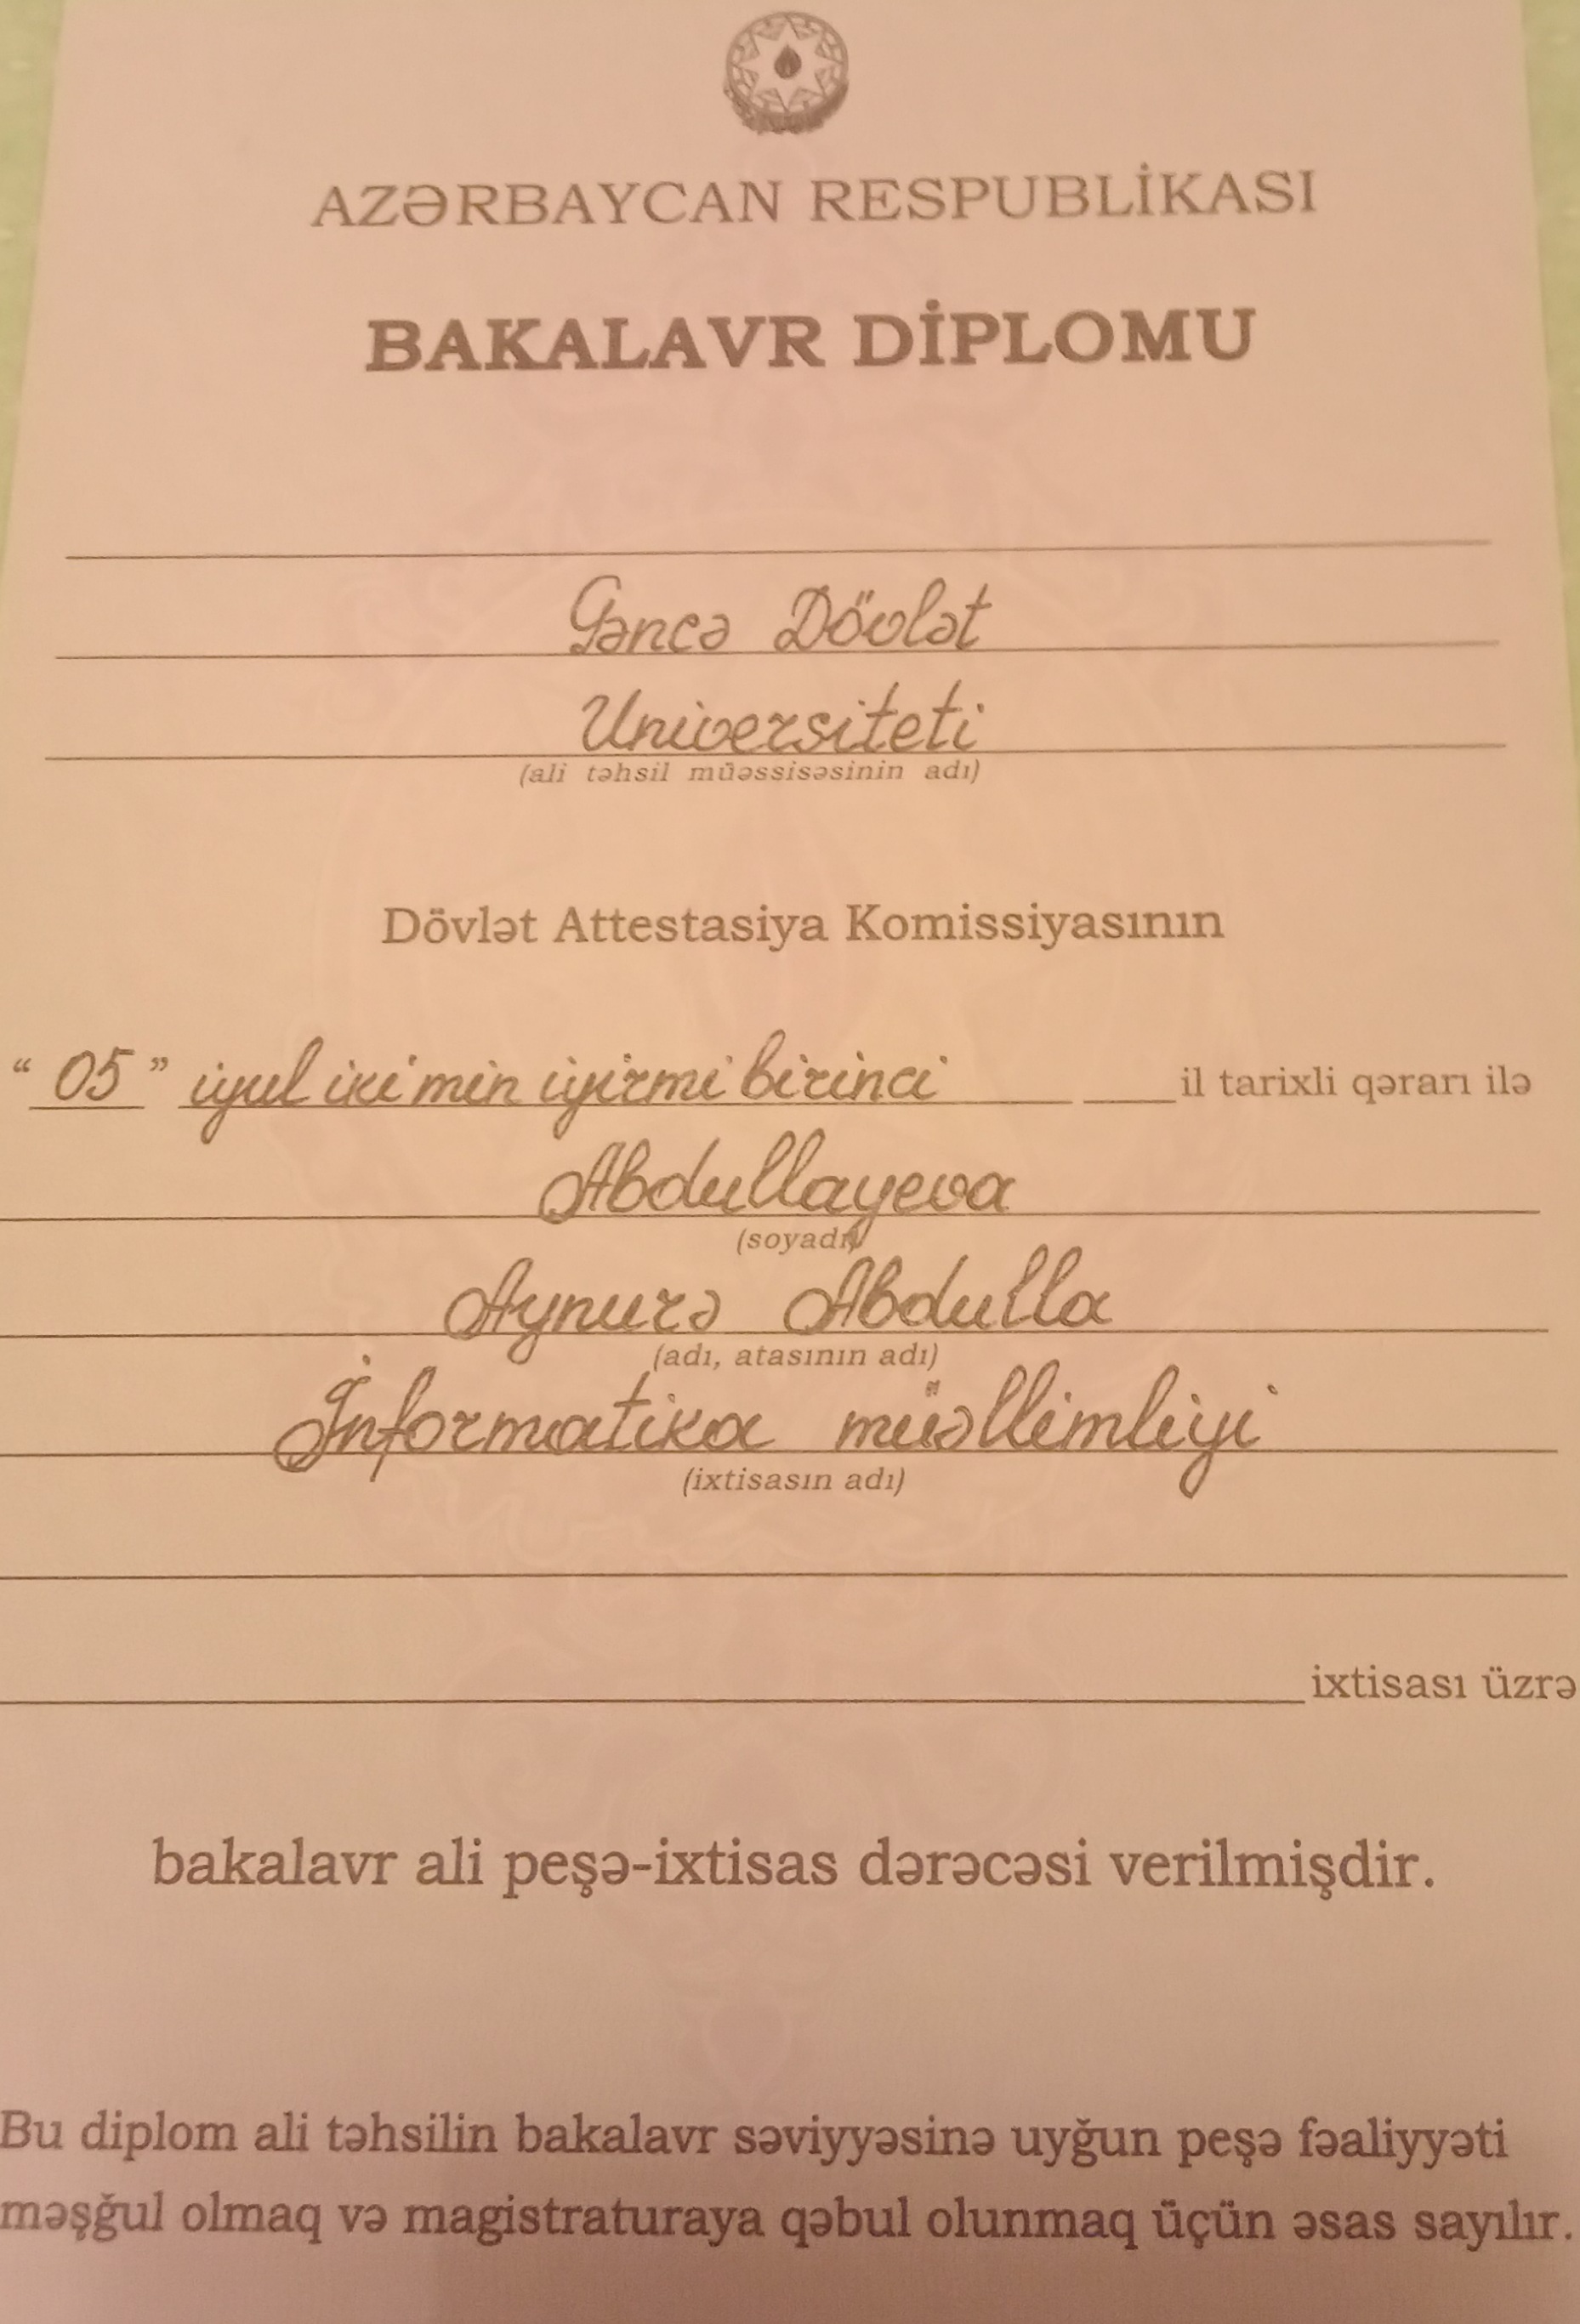 AZƏRBAYCAN RESPUBLİKASI
BAKALAVR DİPLOMU
Gəncə Dövlət
Universiteti
(ali təhsil müəssisəsinin adı)
Dövlət Attestasiya Komissiyasının
“ 05 ” iyul iki min iyirmi birinci il tarixli qərarı ilə
Abdullayeva
(soyadı)
Aynurə Abdulla
(adı, atasının adı)
İnformatika müəllimliyi
(ixtisasın adı)
ixtisası üzrə
bakalavr ali peşə-ixtisas dərəcəsi verilmişdir.
Bu diplom ali təhsilin bakalavr səviyyəsinə uyğun peşə fəaliyyəti
məşğul olmaq və magistraturaya qəbul olunmaq üçün əsas sayılır.